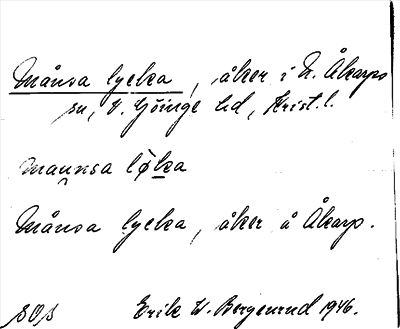 Månsa lycka, åker i N. Åkarps
sn, V. Göinge hd, Krist. l.
mau̯nsa lø̜ka
Månsa lycka, åker å Åkarp.
Erik W. Bergenrud 1946.